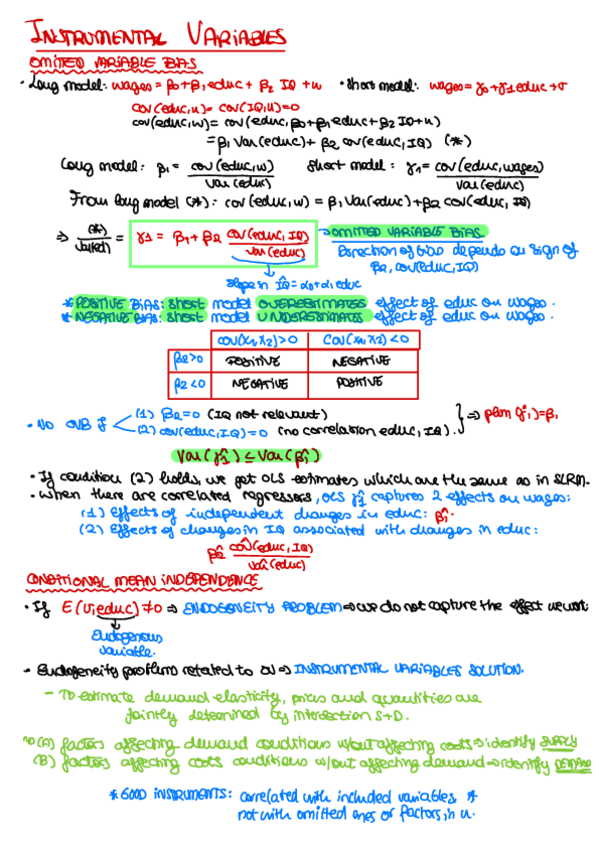 INSTRUMENTAL VARIABLES
OMITED VARIABLE BIAS
· Long model: wages = β0 + β1 educ + β2 IQ + u · Short model: wages = γ0 + γ1 educ + v
cov(educ, u) = cov(IQ, u) = 0
cov(educ, w) = cov(educ, β0 + β1 educ + β2 IQ + u)
= β1 Var(educ) + β2 cov(educ, IQ) (*)
Long model: β1 = cov(educ, w) / Var(educ) Short model: γ1 = cov(educ, wages) / Var(educ)
From long model (*): cov(educ, w) = β1 Var(educ) + β2 cov(educ, IQ)
⇒ (*) / Var(educ) = γ1 = β1 + β2 cov(educ, IQ) / Var(educ) → OMITTED VARIABLE BIAS
Direction of bias depends on sign of
β2, cov(educ, IQ)
slope in IQ̂ = α0 + α1 educ
* POSITIVE BIAS: short model OVERESTIMATES effect of educ on wages.
* NEGATIVE BIAS: short model UNDERESTIMATES effect of educ on wages.
cov(x1, x2) > 0 cov(x1, x2) < 0
β2 > 0 POSITIVE NEGATIVE
β2 < 0 NEGATIVE POSITIVE
· NO OVB if (1) β2 = 0 (IQ not relevant)
(2) cov(educ, IQ) = 0 (no correlation educ, IQ). ⇒ plim(γ̂1) = β1
Var(γ̂1) ≤ Var(β̂1)
· If condition (2) holds, we get OLS estimates which are the same as in SLRM.
· when there are correlated regressors, OLS γ̂1 captures 2 effects on wages:
(1) Effects of independent changes in educ: β̂1.
(2) Effects of changes in IQ associated with changes in educ:
β̂2 cov̂(educ, IQ) / var̂(educ)
CONDITIONAL MEAN INDEPENDENCE
· If E(u, educ) ≠ 0 ⇒ ENDOGENEITY PROBLEM ⇒ we do not capture the effect we want
Endogenous
variable.
- Endogeneity problem related to OV ⇒ INSTRUMENTAL VARIABLES SOLUTION.
- To estimate demand elasticity, prices and quantities are
jointly determined by intersection S+D.
(A) factors affecting demand conditions w/out affecting costs → identify SUPPLY
(B) factors affecting costs conditions w/out affecting demand → identify DEMAND
* GOOD INSTRUMENTS: correlated with included variables, *
not with omitted ones or factors, in u.